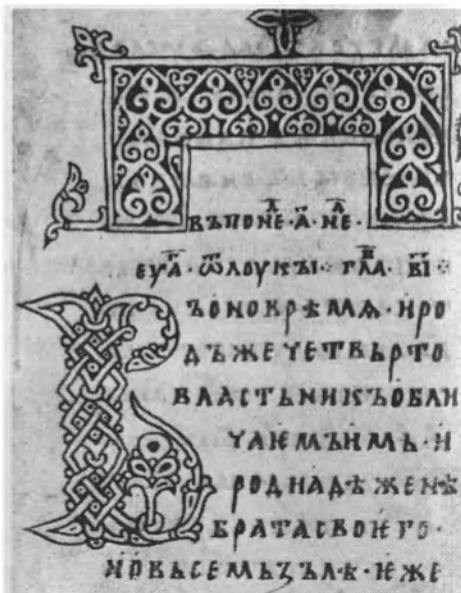 въ понⷣе҃·а҃·нⷣе҃·
еуⷢ҇а҃·ѿлоукы·глⷡ҇а·в҃і
Въ оно врѣмѧ·иро
дъжечетвьрто
властьникъобли
чаѥмъимь·и
родиадѣжѥнѣ
братасвоѥго·
иовьсемьзълѣ·ѥже